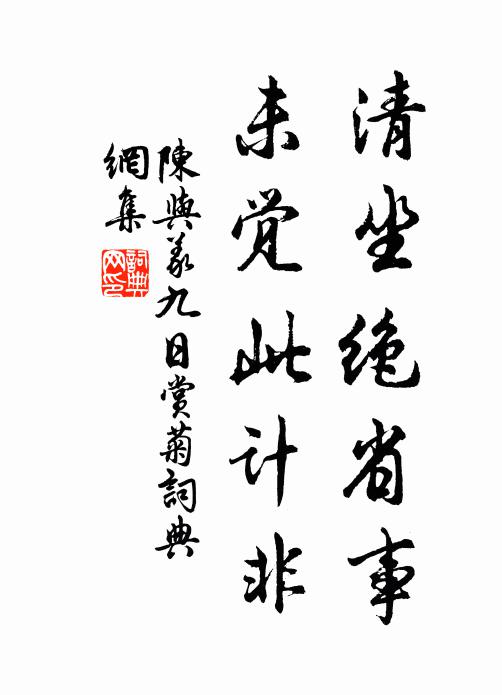 清坐绝省事
未觉此计非
陳與義九日賞菊詞典
網集
詞典
网印